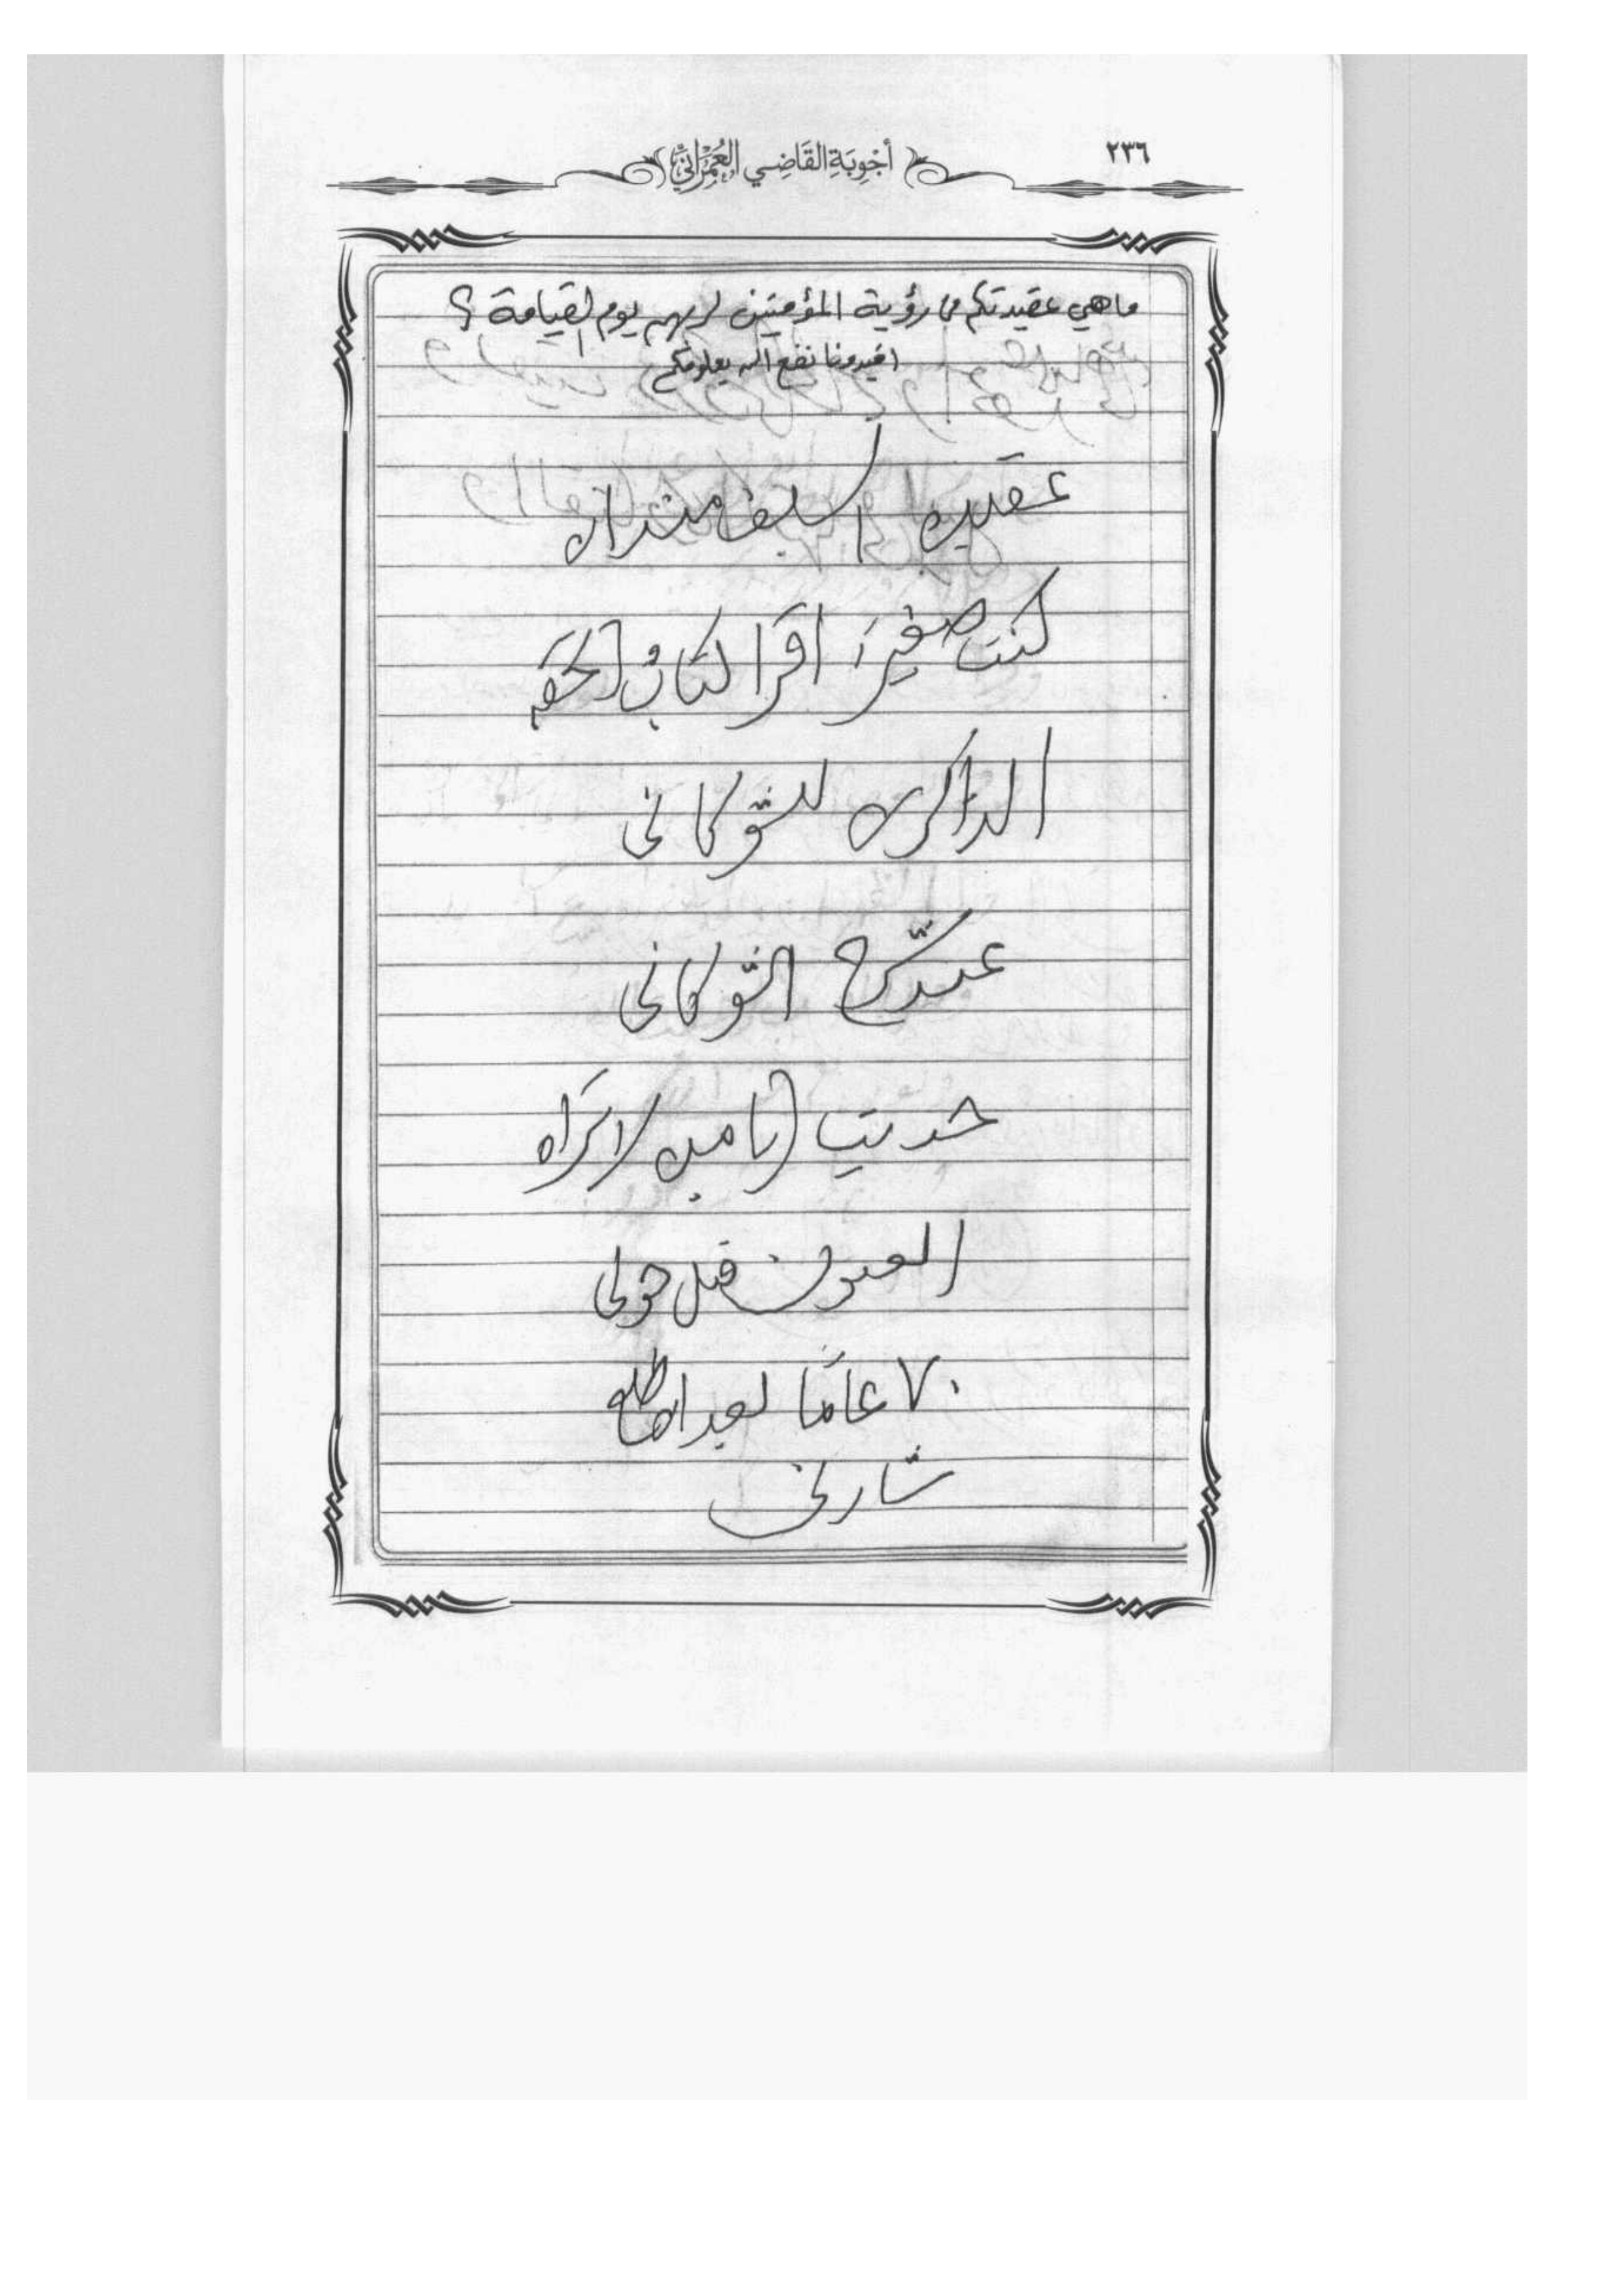 ٢٣٦
أَجْوِبَةِ القَاضِي العُمْرَانِيّ
ما هي عقيدتكم في رؤية المؤمنين لربهم يوم القيامة ؟
افيدونا نفع الله بعلومكم
عقيدة السلف منذ ان
كنت صغيرًا اقرا كتاب تحفة
الذاكرين للشوكاني
عند شرح الشوكاني
حديث يا من لا تراه
العيون قبل حوالي
٧٠ عامًا